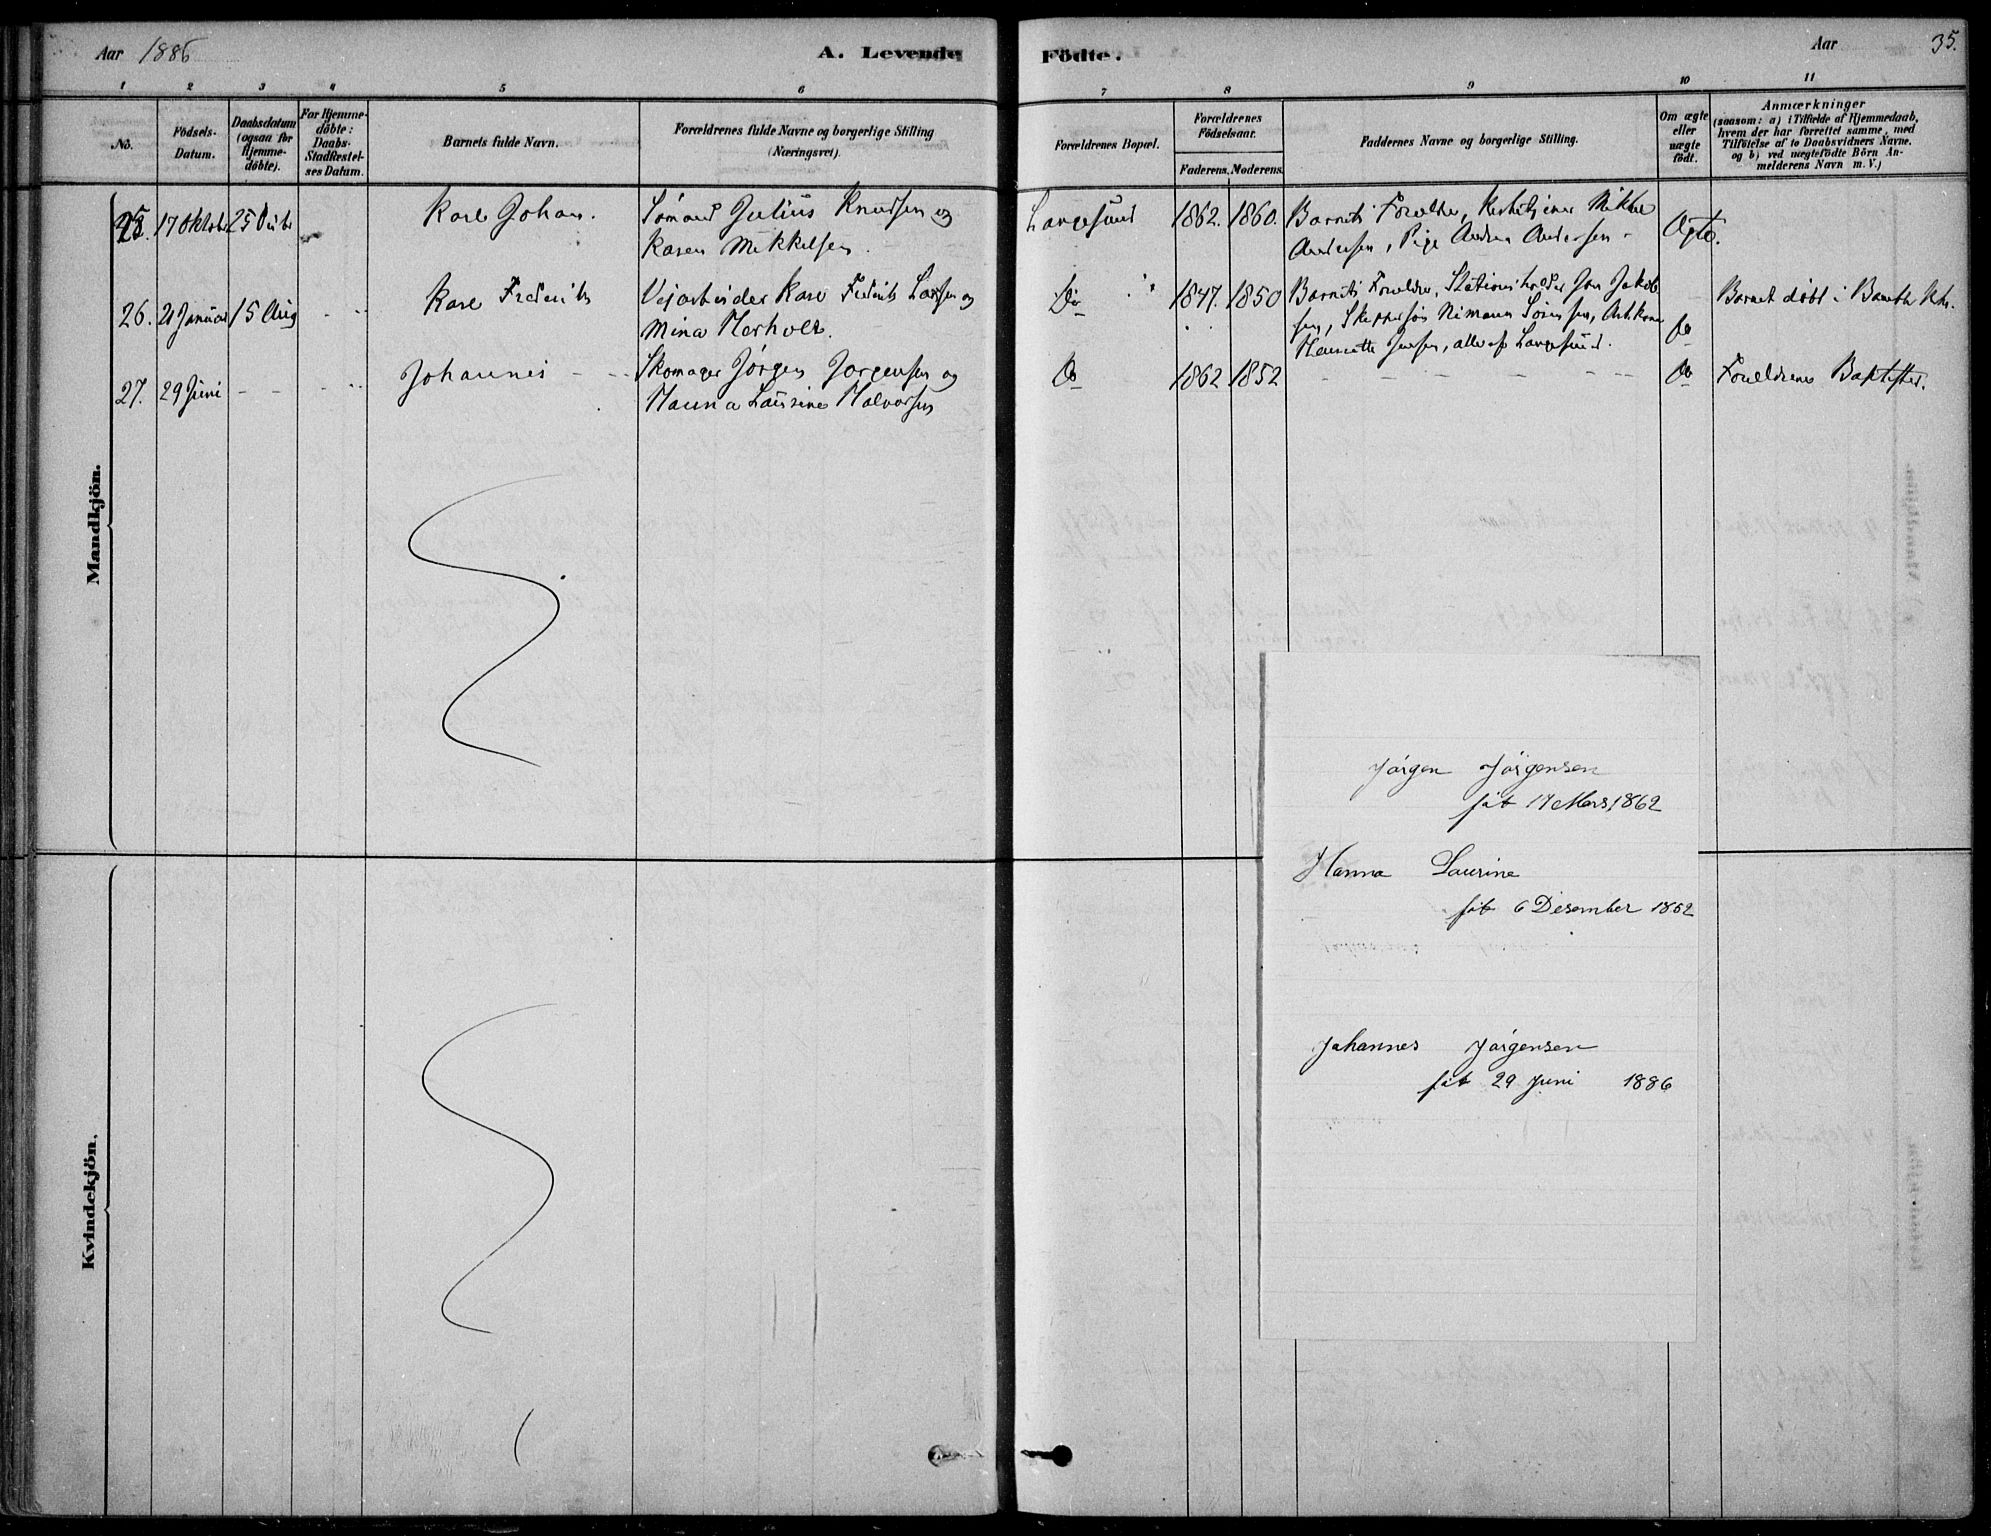 Aar 1886
A. Levende
Födte.
Aar
35.
1 2 3 4 5 6 7 8 9 10 11
No.
Födsels-
Datum.
Daabsdatum
(ogsaa for
Hjemme-
döbte).
For Hjemme-
döbte:
Daabs-
Stadfæstel-
ses Datum.
Barnets fulde Navn.
Forældrenes fulde Navne og borgerlige Stilling
(Næringsvei).
Forældrenes Bopæl.
Forældrenes
Födselsaar.
Faderens. Moderens.
Faddernes Navne og borgerlige Stilling.
Om ægte
eller
uægte
födt.
Anmærkninger
(saasom: a) i Tilfælde af Hjemmedaab,
hvem der har forrettet samme, med
Tilföielse af to Daabsvidners Navne.
og b) ved uægtefödte Börn An-
melderens Navn m. V.)
Mandkjön.
25. 17 Oktober 25 Karl Johan. Sömand Julius Knudsen og Langesund 1862. 1860. Barnets Forældre, Mikkel
Karen Mikkelsen. Andersen, Pige Andrea Andersen - Ægte.
26. 21 Januar 15 Aug Karl Frederik Veiarbeider Karl Frederik Larsen og Do 1847. 1850 Barnets Forældre, Stationsholder Jakob- Barnet döbt i Bamble Kk.
Mina Herholt. sen, Skippersøn Nimann Sörensen, Arb.kone Do
Henriette Jensen, alle af Langesund.
27. 29 Juni - - Johannes - - Skomager Jørgen Jørgensen og Do 1862 1852 - - - - - Do Forældrene Baptister.
Hanna Laurine Halvorsen
Jørgen Jørgensen
føt 17 Mars 1862
Hanna Laurine
føt 6 Desember 1852
Johannes Jørgensen
føt 29 Juni 1886
Kvindekjön.